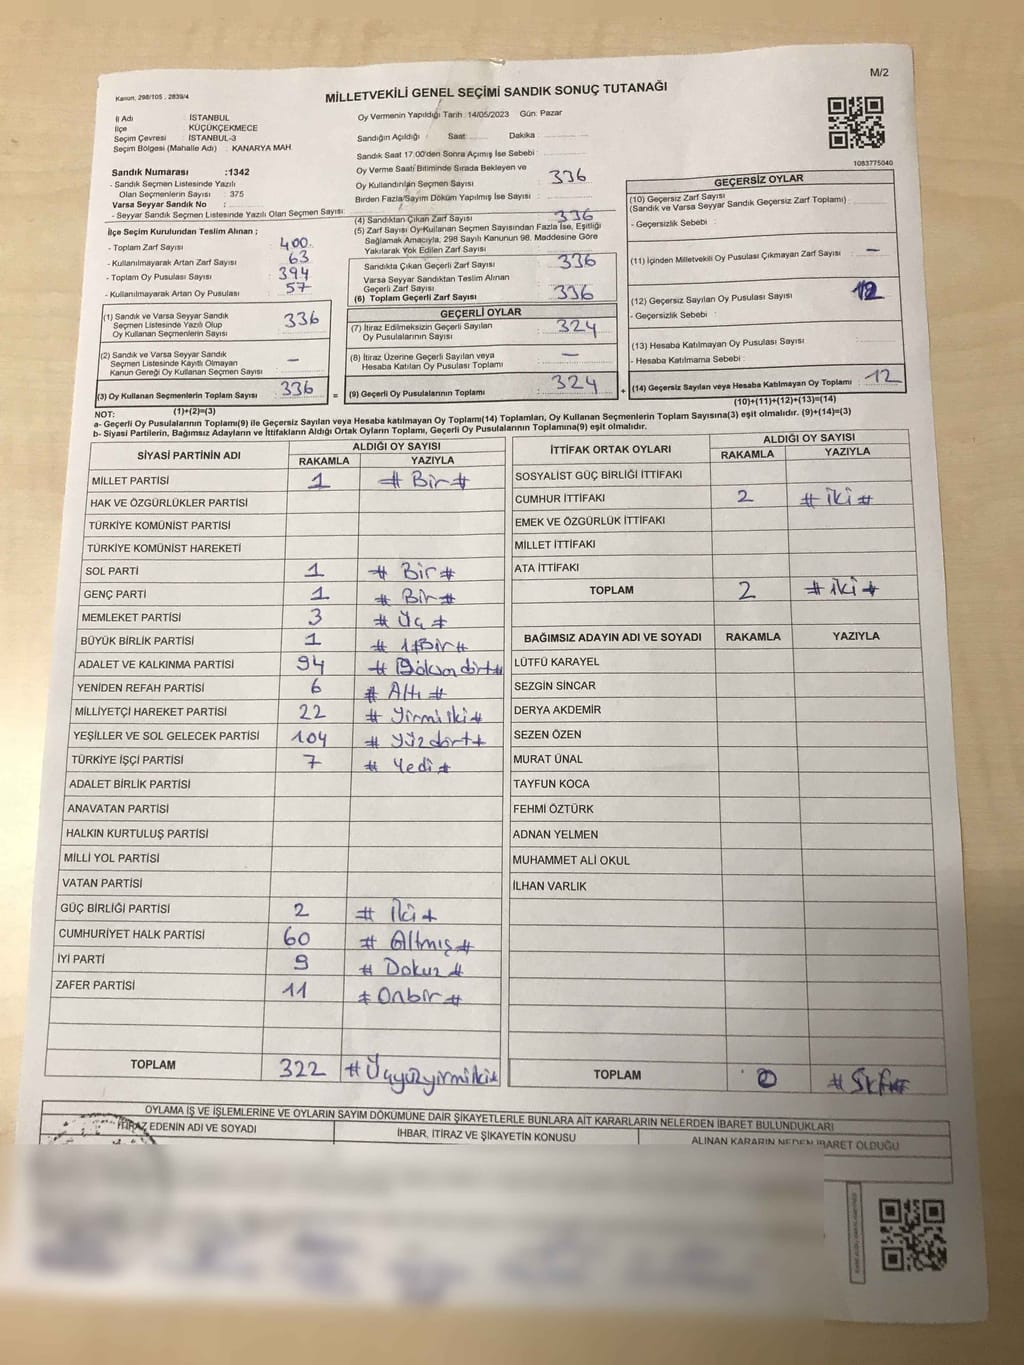 M/2
Kanun, 298/105 , 2839/4
MİLLETVEKİLİ GENEL SEÇİMİ SANDIK SONUÇ TUTANAĞI
İl Adı : İSTANBUL
İlçe KÜÇÜKÇEKMECE
Seçim Çevresi İSTANBUL-3
Seçim Bölgesi (Mahalle Adı) : KANARYA MAH.
Sandık Numarası :1342
- Sandık Seçmen Listesinde Yazılı
Olan Seçmenlerin Sayısı : 375
Varsa Seyyar Sandık No :
- Seyyar Sandık Seçmen Listesinde Yazılı Olan Seçmen Sayısı:
İlçe Seçim Kurulundan Teslim Alınan ;
- Toplam Zarf Sayısı 400
- Kullanılmayarak Artan Zarf Sayısı 63
- Toplam Oy Pusulası Sayısı 394
- Kullanılmayarak Artan Oy Pusulası 57
(1) Sandık ve Varsa Seyyar Sandık
Seçmen Listesinde Yazılı Olup
Oy Kullanan Seçmenlerin Sayısı 336
(2) Sandık ve Varsa Seyyar Sandık
Seçmen Listesinde Kayıtlı Olmayan
Kanun Gereği Oy Kullanan Seçmen Sayısı : –
(3) Oy Kullanan Seçmenlerin Toplam Sayısı : 336
(1)+(2)=(3)
Oy Vermenin Yapıldığı Tarih :14/05/2023 Gün: Pazar
Sandığın Açıldığı Saat: Dakika :
Sandık Saat 17:00'den Sonra Açımış İse Sebebi :
Oy Verme Saati Bitiminde Sırada Bekleyen ve
Oy Kullandırılan Seçmen Sayısı : 336
Birden Fazla Sayım Döküm Yapılmış İse Sayısı :
(4) Sandıktan Çıkan Zarf Sayısı 336
(5) Zarf Sayısı Oy Kullanan Seçmen Sayısından Fazla İse, Eşitliği
Sağlamak Amacıyla, 298 Sayılı Kanunun 98. Maddesine Göre
Yakılarak Yok Edilen Zarf Sayısı :
Sandıkta Çıkan Geçerli Zarf Sayısı : 336
Varsa Seyyar Sandıktan Teslim Alınan
Geçerli Zarf Sayısı :
(6) Toplam Geçerli Zarf Sayısı : 336
GEÇERLİ OYLAR
(7) İtiraz Edilmeksizin Geçerli Sayılan
Oy Pusulalarının Sayısı : 324
(8) İtiraz Üzerine Geçerli Sayılan veya
Hesaba Katılan Oy Pusulası Toplamı : –
= (9) Geçerli Oy Pusulalarının Toplamı : 324 +
1083775040
GEÇERSİZ OYLAR
(10) Geçersiz Zarf Sayısı
(Sandık ve Varsa Seyyar Sandık Geçersiz Zarf Toplamı) :
- Geçersizlik Sebebi :
(11) İçinden Milletvekili Oy Pusulası Çıkmayan Zarf Sayısı : –
(12) Geçersiz Sayılan Oy Pusulası Sayısı : 12
- Geçersizlik Sebebi :
(13) Hesaba Katılmayan Oy Pusulası Sayısı :
- Hesaba Katılmama Sebebi :
(14) Geçersiz Sayılan veya Hesaba Katılmayan Oy Toplamı : 12
(10)+(11)+(12)+(13)=(14)
NOT:
a- Geçerli Oy Pusulalarının Toplamı(9) ile Geçersiz Sayılan veya Hesaba katılmayan Oy Toplamı(14) Toplamları, Oy Kullanan Seçmenlerin Toplam Sayısına(3) eşit olmalıdır. (9)+(14)=(3)
b- Siyasi Partilerin, Bağımsız Adayların ve İttifakların Aldığı Ortak Oyların Toplamı, Geçerli Oy Pusulalarının Toplamına(9) eşit olmalıdır.
SİYASİ PARTİNİN ADI ALDIĞI OY SAYISI
RAKAMLA YAZIYLA
MİLLET PARTİSİ 1 # Bir #
HAK VE ÖZGÜRLÜKLER PARTİSİ
TÜRKİYE KOMÜNİST PARTİSİ
TÜRKİYE KOMÜNİST HAREKETİ
SOL PARTİ 1 # Bir #
GENÇ PARTİ 1 # Bir #
MEMLEKET PARTİSİ 3 # Üç #
BÜYÜK BİRLİK PARTİSİ 1 # 1#Bir #
ADALET VE KALKINMA PARTİSİ 94
YENİDEN REFAH PARTİSİ 6 # Altı #
MİLLİYETÇİ HAREKET PARTİSİ 22 # Yirmiİki #
YEŞİLLER VE SOL GELECEK PARTİSİ 104 # Yüzdört #
TÜRKİYE İŞÇİ PARTİSİ 7 # Yedi #
ADALET BİRLİK PARTİSİ
ANAVATAN PARTİSİ
HALKIN KURTULUŞ PARTİSİ
MİLLİ YOL PARTİSİ
VATAN PARTİSİ
GÜÇ BİRLİĞİ PARTİSİ 2 # İki #
CUMHURİYET HALK PARTİSİ 60 # Altmış #
İYİ PARTİ 9 # Dokuz #
ZAFER PARTİSİ 11 # Onbir #
TOPLAM 322 # Üçyüzyirmiİki #
İTTİFAK ORTAK OYLARI ALDIĞI OY SAYISI
RAKAMLA YAZIYLA
SOSYALİST GÜÇ BİRLİĞİ İTTİFAKI
CUMHUR İTTİFAKI 2 # İki #
EMEK VE ÖZGÜRLÜK İTTİFAKI
MİLLET İTTİFAKI
ATA İTTİFAKI
TOPLAM 2 # İki #
BAĞIMSIZ ADAYIN ADI VE SOYADI RAKAMLA YAZIYLA
LÜTFÜ KARAYEL
SEZGİN SİNCAR
DERYA AKDEMİR
SEZEN ÖZEN
MURAT ÜNAL
TAYFUN KOCA
FEHMİ ÖZTÜRK
ADNAN YELMEN
MUHAMMET ALİ OKUL
İLHAN VARLIK
TOPLAM 0
OYLAMA İŞ VE İŞLEMLERİNE VE OYLARIN SAYIM DÖKÜMÜNE DAİR ŞİKAYETLERLE BUNLARA AİT KARARLARIN NELERDEN İBARET BULUNDUKLARI
İTİRAZ EDENİN ADI VE SOYADI İHBAR, İTİRAZ VE ŞİKAYETİN KONUSU ALINAN KARARIN NEDEN İBARET OLDUĞU